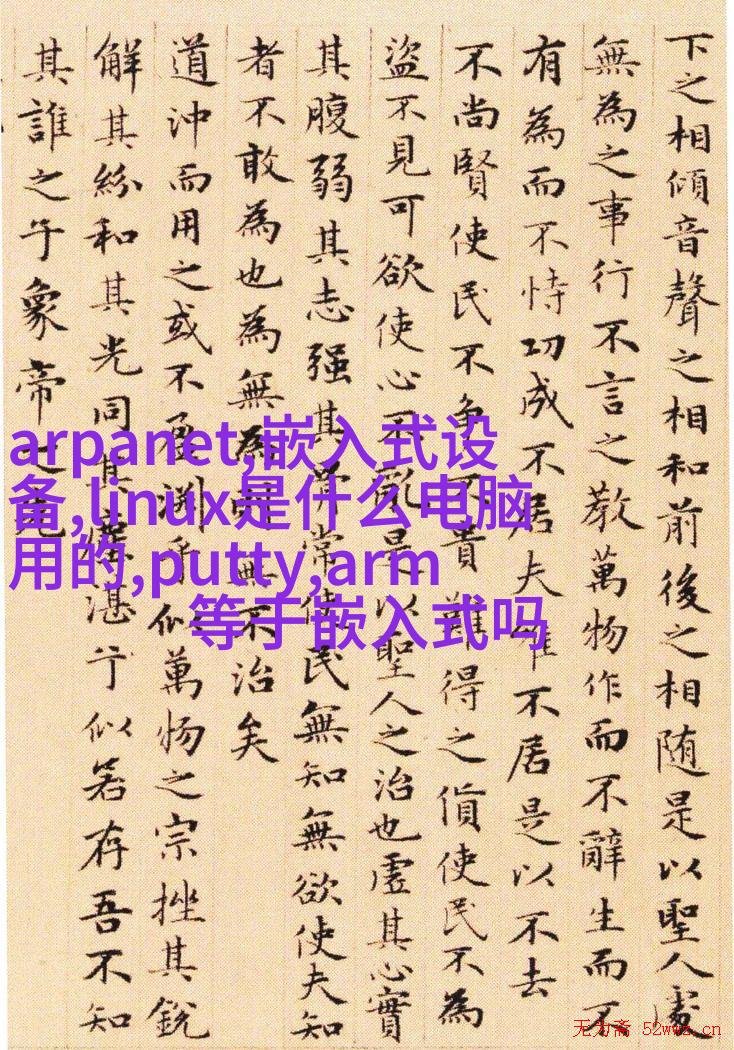 下之相傾音聲之相和前後之相随是以聖人處
無為之事行不言之教萬物作而不辭生而不
有為而不恃功成不居夫唯不居是以不去
不尚賢使民不争不貴難得之貨使民不為
盜不見可欲使心不亂是以聖人之治也虛其心實
其腹弱其志强其骨常使民無知無欲使夫知
者不敢為也為無為則無不治矣
道沖而用之或不盈淵乎似萬物之宗挫其銳
解其紛和其光同其塵湛兮似若存吾不知
其誰之子象帝之先
arpanet,嵌入式设
备,linux是什么电脑
用的,putty,arm
等于嵌入式吗
无为斋 52wwz.cn